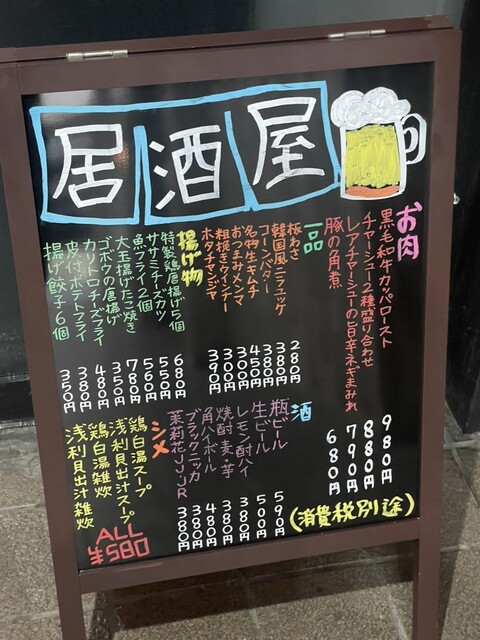 居酒屋
お肉
黒毛和牛カッパロースト 980円
チャーシュー2種盛り合わせ 880円
レアチャーシューの旨辛ネギまみれ 790円
豚の角煮 680円
一品
板わさ 280円
韓国風ニラニッケ 380円
コーンバター 380円
名物生キムチ 450円
おつまみメンマ 300円
粗挽きウインナー 300円
ホタテマンジャ 390円
揚げ物
特製鶏唐揚げ5個 680円
ササミチーズカツ 550円
魚フライ2個 550円
大玉揚げたこ焼き 780円
ゴボウの唐揚げ 350円
カリトロチーズフライ 480円
皮付ポテトフライ 380円
揚げ餃子6個 350円
酒
瓶ビール 590円
生ビール 500円
レモン酎ハイ 380円
焼酎麦・芋 380円
角ハイボール 480円
ブラックニッカ 380円
茉莉花JJ・JR 380円
シメ
鶏白湯スープ
浅利貝出汁スープ
鶏白湯雑炊
浅利貝出汁雑炊
ALL
¥580
(消費税別途)